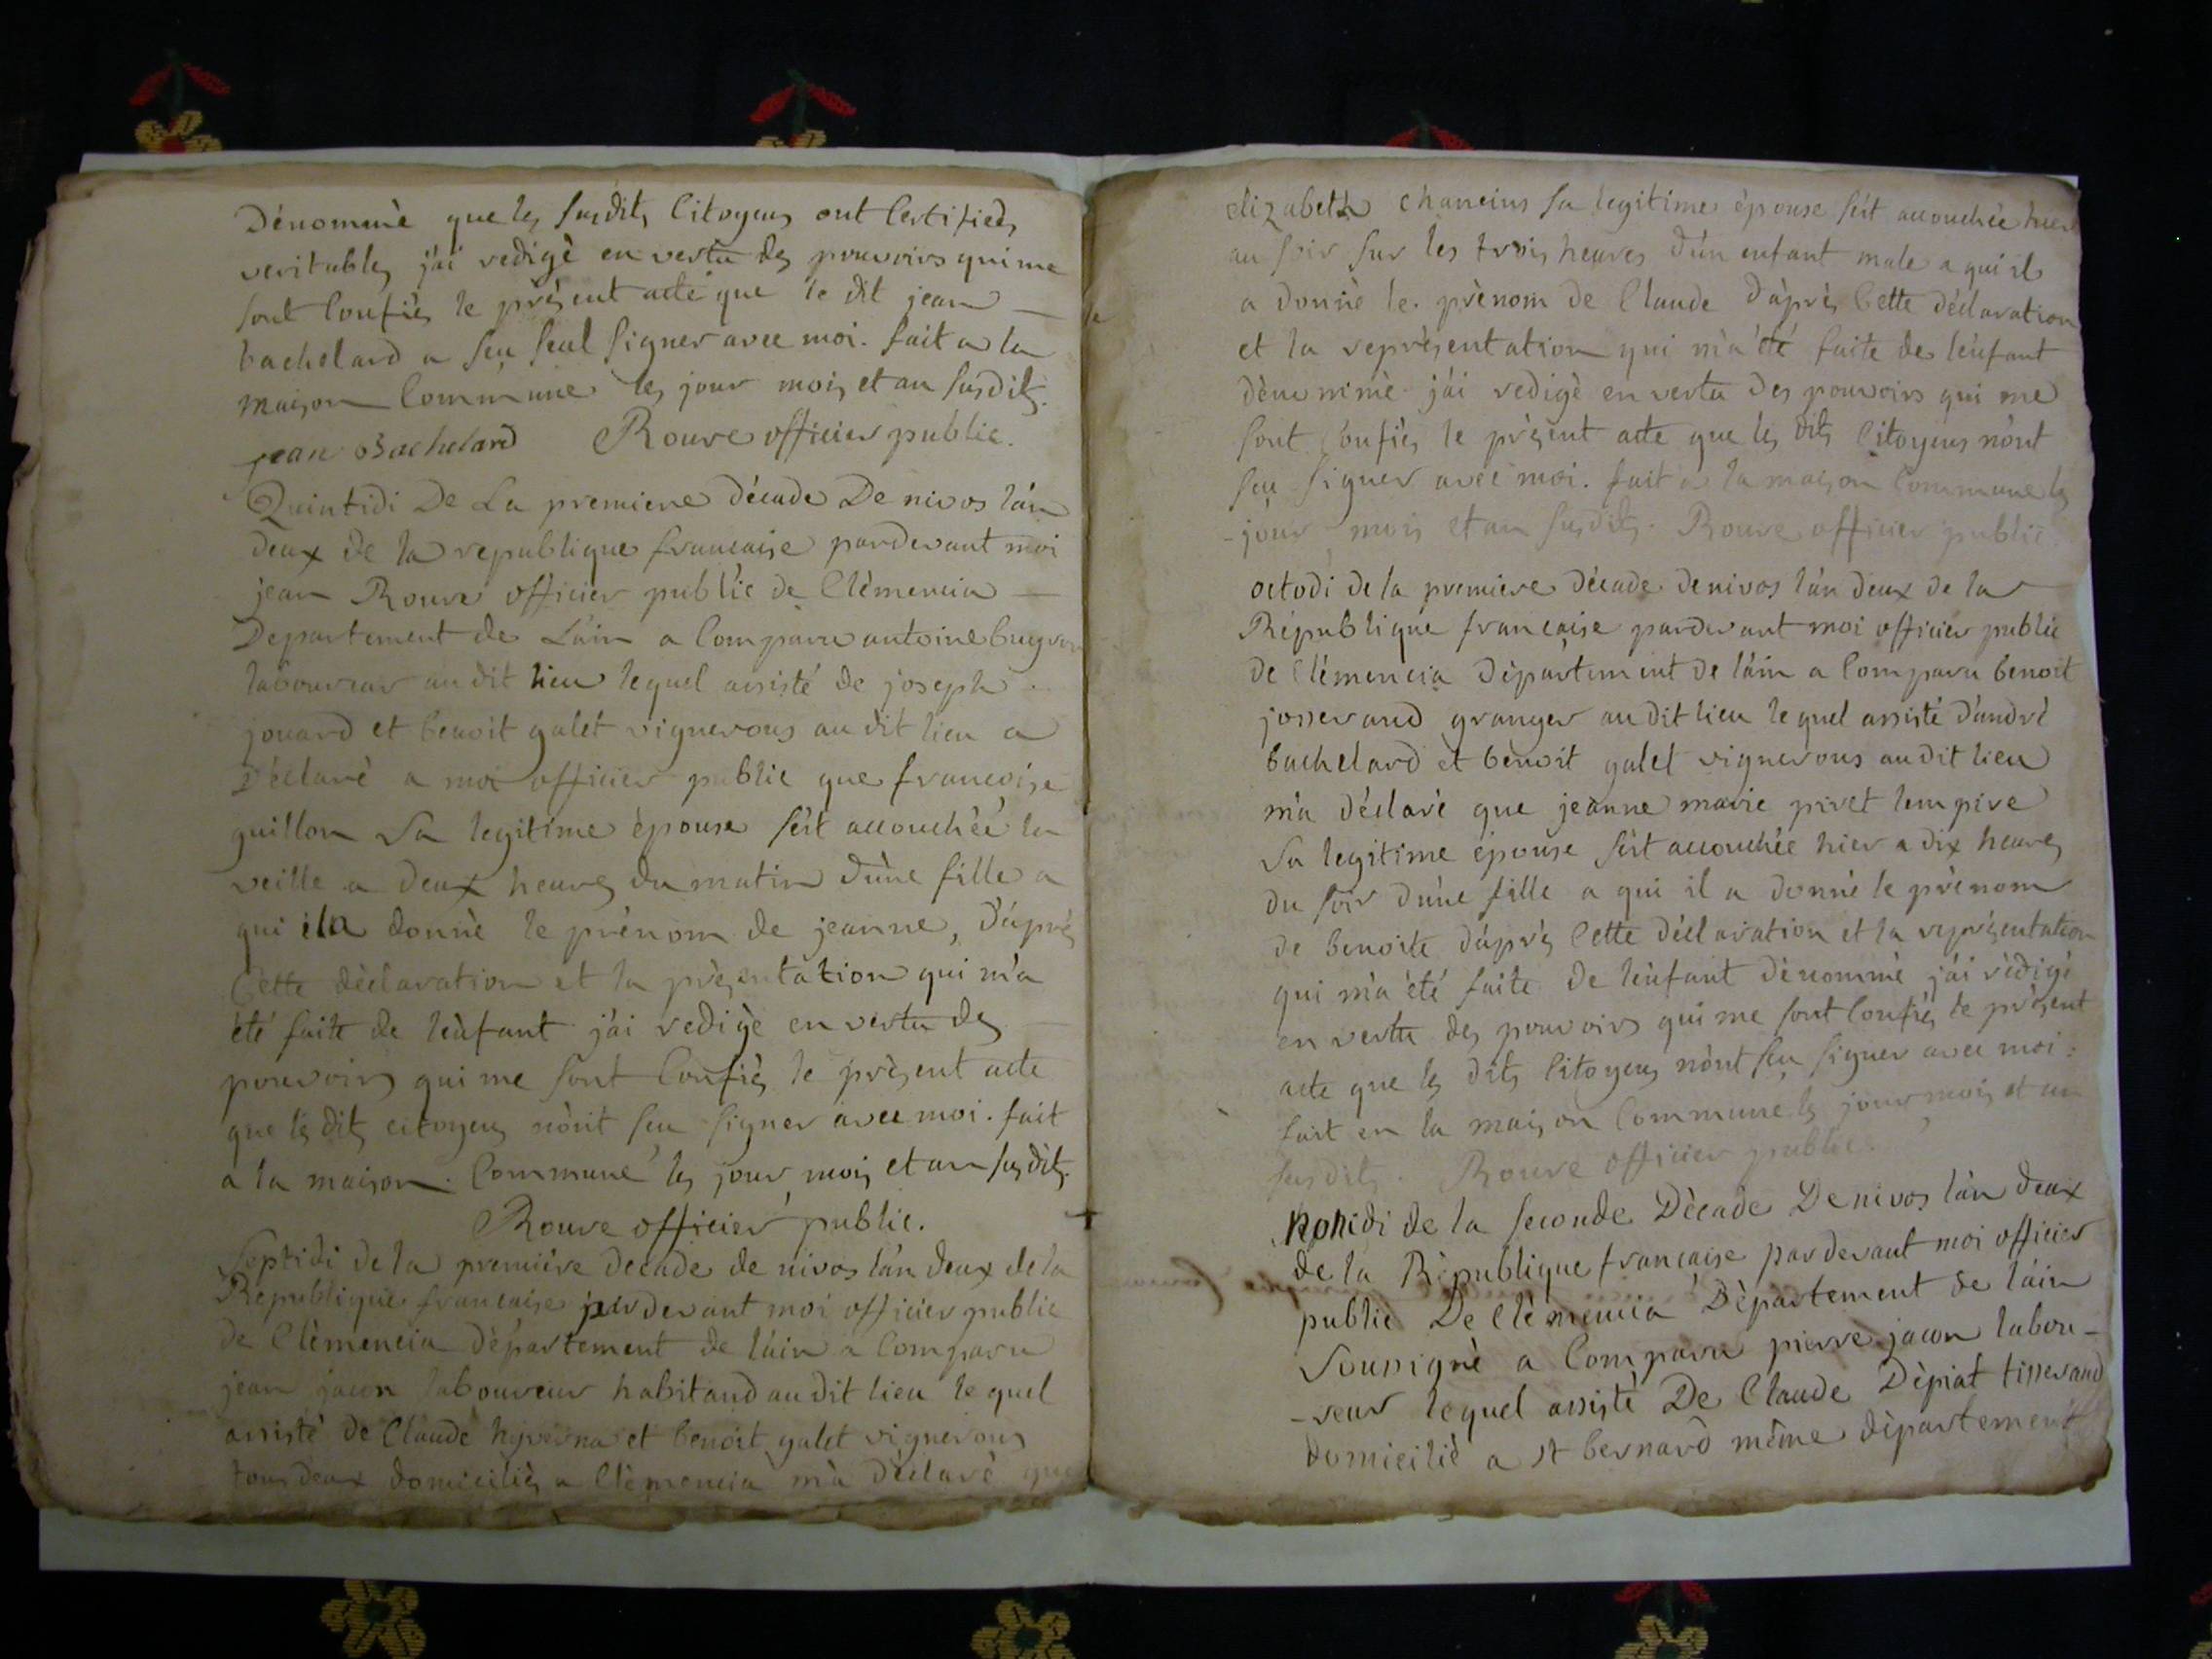 Dénommè que les susdits Citoyens ont Certifiés
veritables j'ai redigè en vertu des pouvoirs qui me
sont Confiés le prèsent acte que le dit jean
bachelard a seu seul signer avec moi. fait a la
maison Commune les jour mois et an susdits.
jean Bachelard Rouve officier public.
Quintidi De La premiere décade De nivos l'an
deux de la republique francaise pardevant moi
jean Rouve officier public de Clémencia
Departement de L'ain a Comparu antoine
laboureur au dit lieu lequel assisté de joseph
jouard et benoit galet vignerons au dit lieu a
Déclarè a moi officier public que francoise
guillon Sa legitime èpouse s'est accouchéé la
veille a deux heures du matin d'une fille a
qui il a donnè le prènom de jeanne, d'après
Cette dèclaration et la présentation qui m'a
été faite de l'enfant j'ai redigè en vertu des
pouvoirs qui me sont Confiés le prèsent acte
que les dits citoyens n'ont seu signer avec moi. fait
a la maison Commune les jour, mois et an susdits.
Rouve officier public.
Septidi de la première decade de nivos l'an deux de la
Republique francaise pardevant moi officier public
de Clèmencia département de l'ain a Comparu
jean jacon laboureur habitand au dit lieu le quel
assisté de Claude et benoit galet vignerons
tous deux domiciliés a Clèmencia m'a déclaré que
elizabeth chaneins sa legitime èpouse s'est accouchée hier
au soir sur les trois heures d'un enfant male a qui il
a donnè le prènom de Claude d'après Cette déclaration
et la reprèsentation qui m'a été faite de l'enfant
dènommè j'ai redigè en vertu des pouvoirs qui me
sont Confiés le prèsent acte que les dits Citoyens n'ont
seu signer avec moi. fait a la maison Commune les
jour mois et an susdits. Rouve officier public
octodi de la premiere décade de nivos l'an deux de la
Rèpublique francaise pardevant moi officier public
de Clémencia Département de l'ain a Comparu benoit
josserand granger au dit lieu le quel assisté d'andrè
bachelard et benoit galet vignerons au dit lieu
m'a déclarè que jeanne marie pivet
Sa legitime épouse s'est accouchée hier a dix heures
du soir d'une fille a qui il a donné le prènom
de benoite d'après Cette déclaration et la reprèsentation
qui m'a été faite de l'enfant dènommè j'ai rèdigé
en vertu des pouvoirs qui me sont Confiés le prèsent
acte que les dits Citoyens n'ont seu signer avec moi:
fait en la maison Commune les jour, mois et an
susdits. Rouve officier public.
Nonidi de la seconde Dècade De nivos l'an deux
de la Rèpublique francaise pardevant moi officier
public De Clèmencia Dèpartement de l'ain
Soussignè a Comparu pierre jacon labou-
-reur lequel assisté De Claude Dèpiat tisserand
domicilié a st bernard même dèpartement